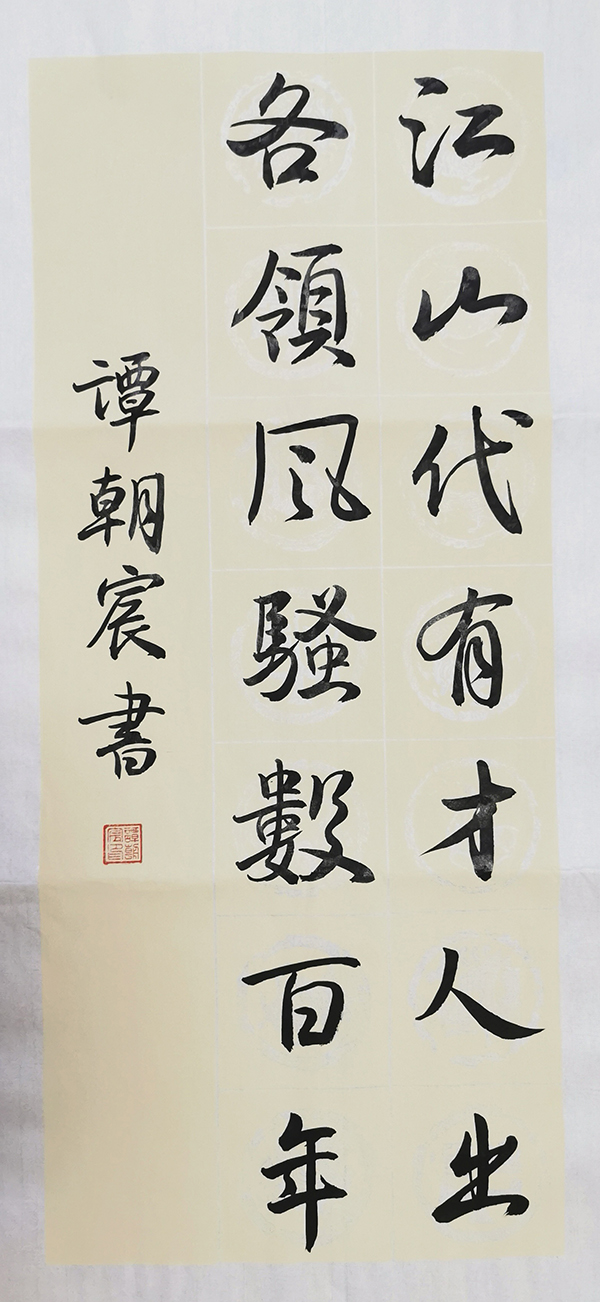 江山代有才人出
各領风騷數百年
譚朝宸書